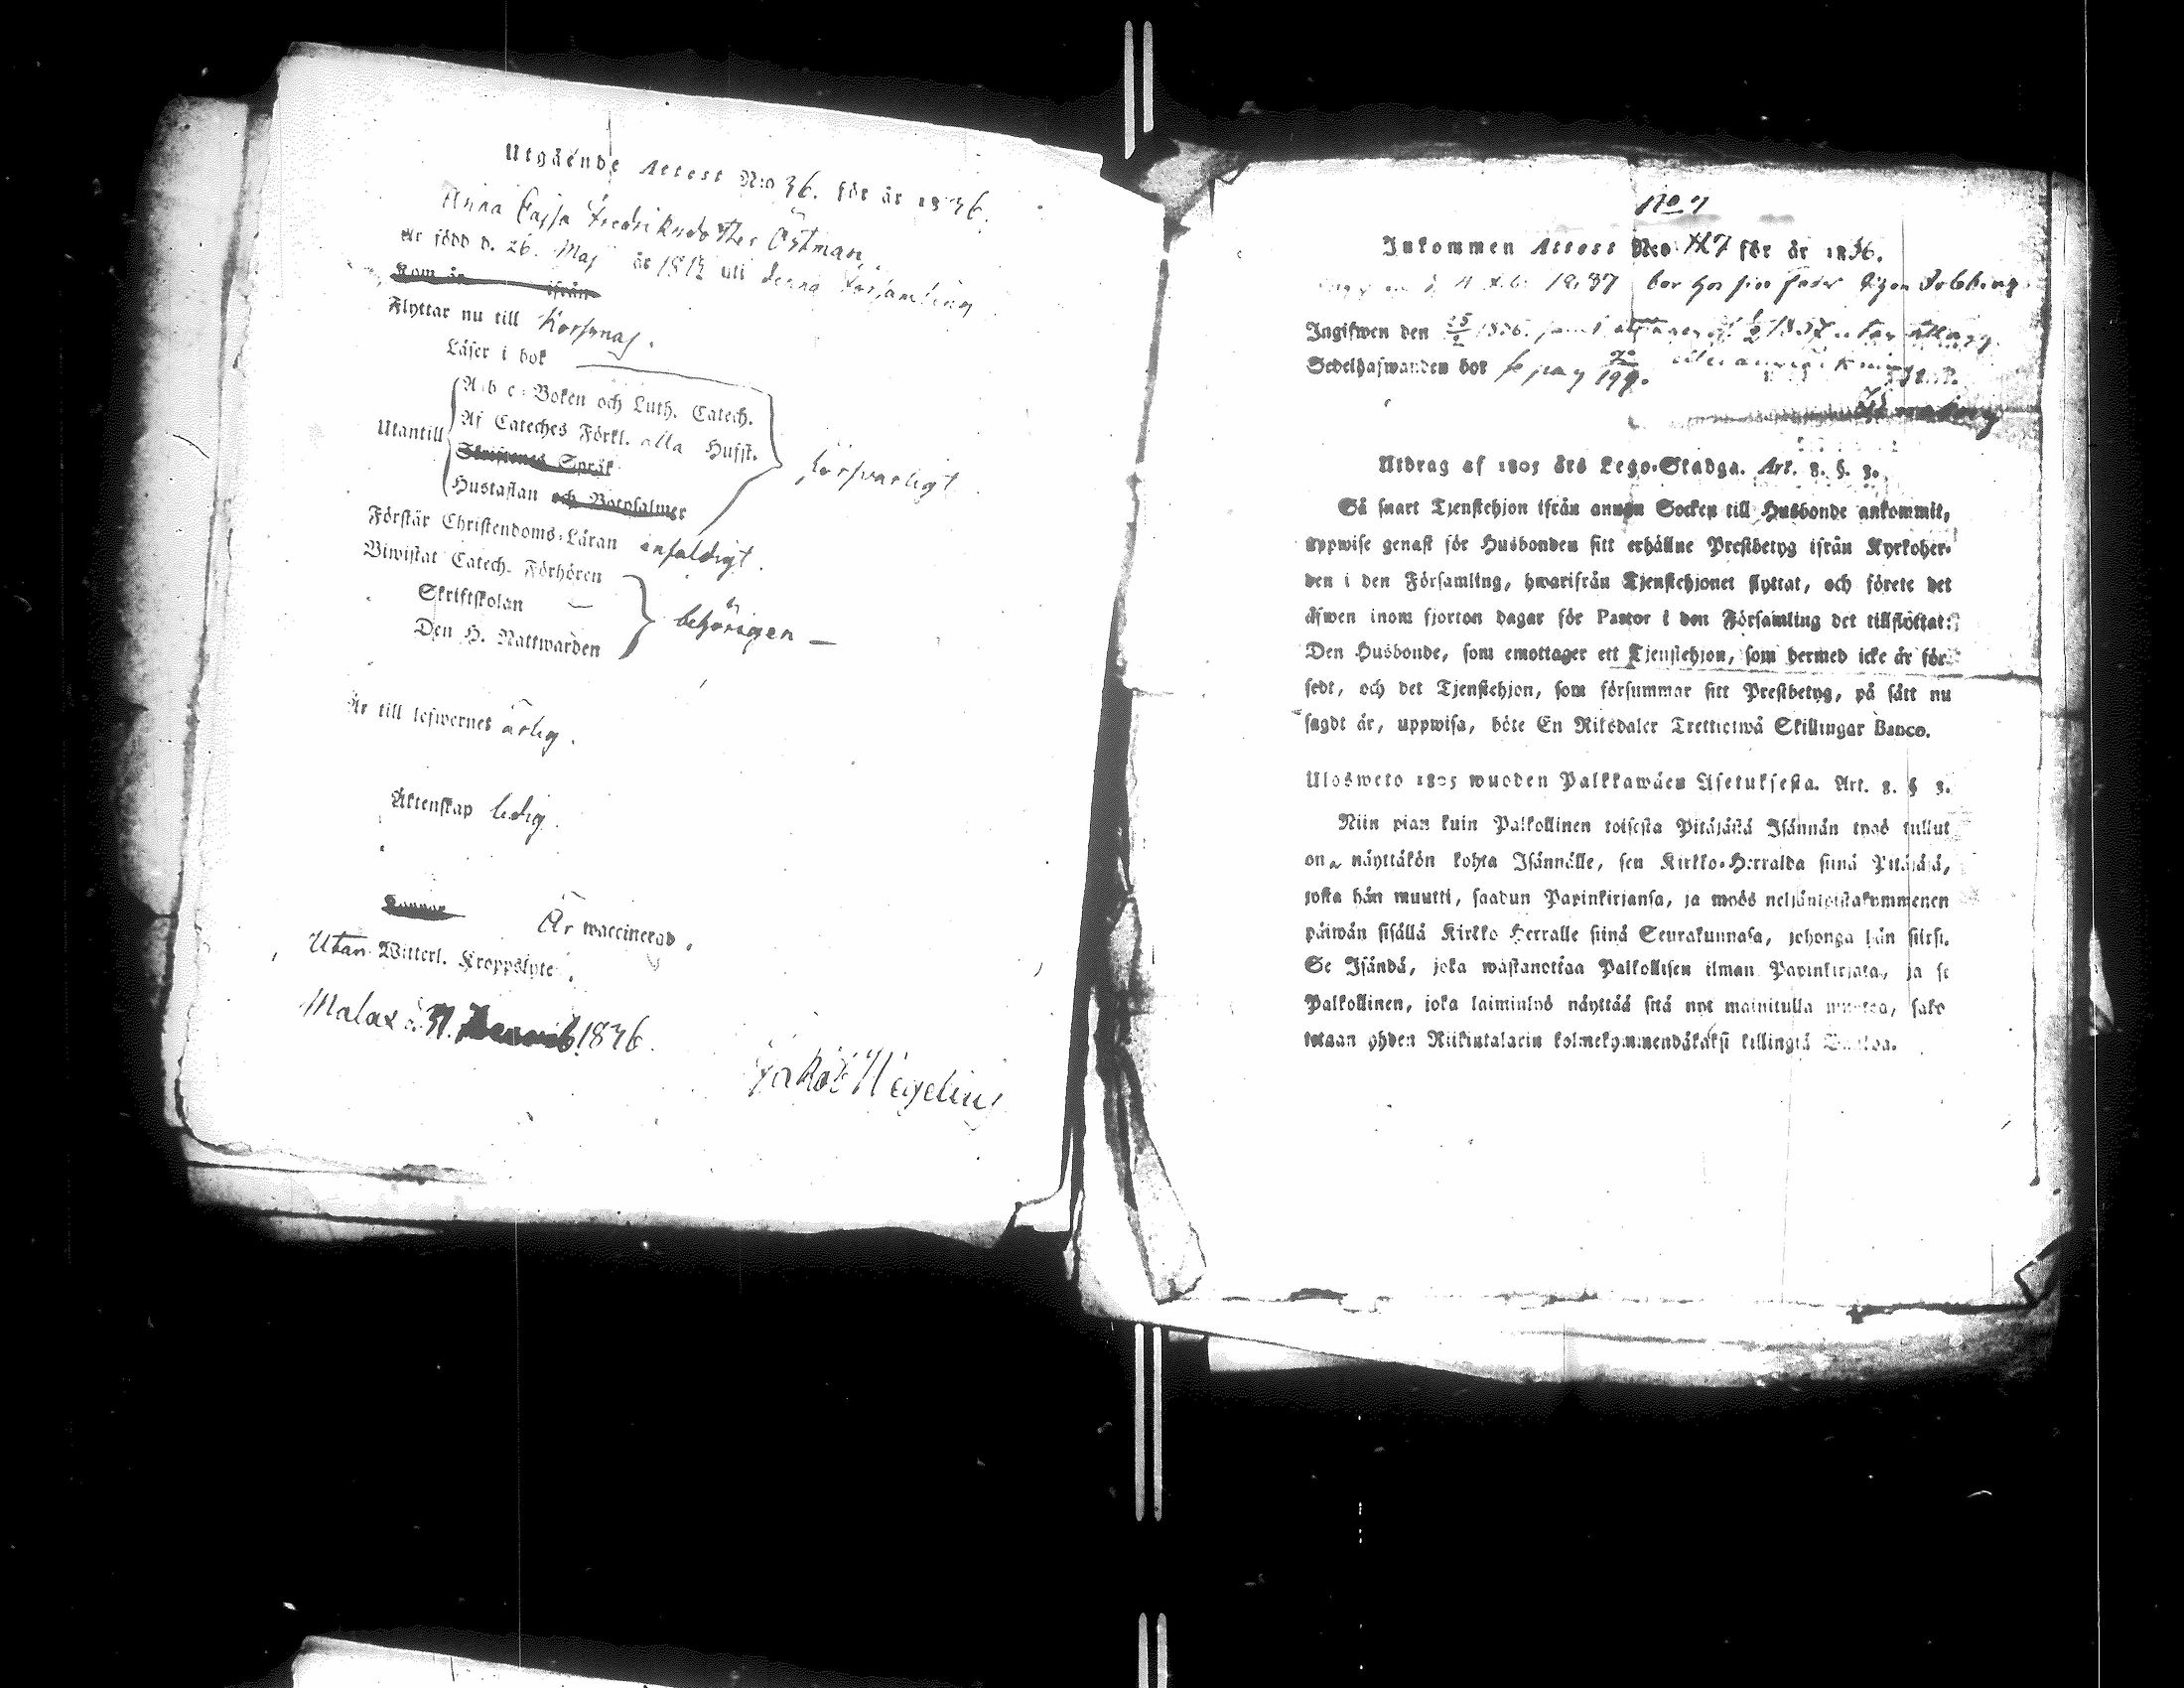 Utgående Attest N:o 36. för år 1836.
Anna Cajsa Fredriksdotter Östman,
Är född d. 26. Maj år 1812 uti denna Församling
Kom år ifrån
Flyttar nu till Korsnäs.
Läser i bok
A-b-c-Boken och Luth. Catech.
Af Cateches Förkl. alla Hufst.
Utantill
Skriftenes Språk
Hustaflan och Botpsalmer
försvarligt
Förstår Christendoms-Läran enfaldigt.
Biwistat Catech. Förhören
Skriftskolan —
Den H. Nattwarden
behörigen —
Är till lefwernet ärlig.
Äktenskap ledig.
Kännar
Är waccinerad.
Utan Witterl. Kroppslyte.
Malax d. 31. 1836.
Jakob Hegelius
No 7
Inkommen Attest N:o 117 för år 1836.
1837 bor hos sin fader
Ingifwen den 25/2 1836. 1837 utan
Sedelhafwanden bor pag 199.
Utdrag af 1805 års Lego-Stadga. Art. 8. §. 3.
Så snart Tjenstehjon ifrån annan Socken till Husbonde ankommit,
uppwise genast för Husbonden sitt erhållne Prestbetyg ifrån Kyrkoher-
den i den Församling, hwarifrån Tjenstehjonet flyttat, och förete det
äfwen inom fjorton dagar för Pastor i den Församling det tillflyttat:
Den Husbonde, som emottager ett Tjenstehjon, som hermed icke är för-
sedt, och det Tjenstehjon, som försummar sitt Prestbetyg, på sätt nu
sagdt är, uppwisa, böte En Riksdaler Trettiotwå Skillingar Banco.
Ulosweto 1805 wuoden Palkkawäen Asetuksesta. Art. 8. § 3.
Niin pian kuin Palkollinen toisesta Pitäjästä Isännän tygö tullut
on, näyttäkön kohta Isännälle, sen Kirkko-Herralda siinä Pitäjäsä,
josta hän muutti, saadun Papinkirjansa, ja myös neljäntoistakymmenen
päiwän sisällä Kirkko Herralle siinä Seurakunnasa, johonga hän siirsi.
Se Isändä, joka wastanottaa Palkollisen ilman Papinkirjata, ja se
Palkollinen, joka laiminlyö näyttää sitä nyt mainitulla muotoa, sako
tetaan yhden Riikintalarin kolmekymmendäkaksi killingiä